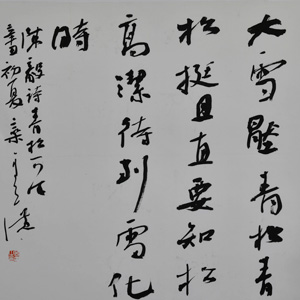 大雪壓青松青
松挺且直要知松
高潔待到雪化
時
陳毅詩青松
初夏